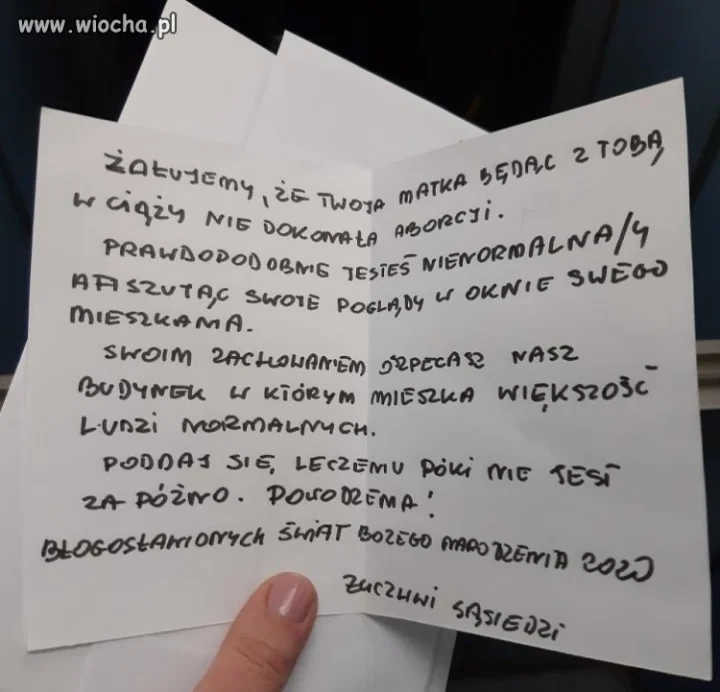 www.wiocha.pl
ŻAŁUJEMY, ŻE TWOJA MATKA BĘDĄC Z TOBĄ
W CIĄŻY NIE DOKONAŁA ABORCJI.
PRAWDOPODOBNIE JESTEŚ NIENORMALNA/Y
AFISZUJĄC SWOJE POGLĄDY W OKNIE SWEGO
MIESZKANIA.
SWOIM ZACHOWANIEM OSZPECASZ NASZ
BUDYNEK W KTÓRYM MIESZKA WIĘKSZOŚĆ
LUDZI NORMALNYCH.
PODDAJ SIĘ, LECZENIU PÓKI NIE JEST
ZA PÓŹNO. POWODZENIA!
BŁOGOSŁAWIONYCH ŚWIĄT BOŻEGO NARODZENIA 2020
ŻYCZLIWI SĄSIEDZI